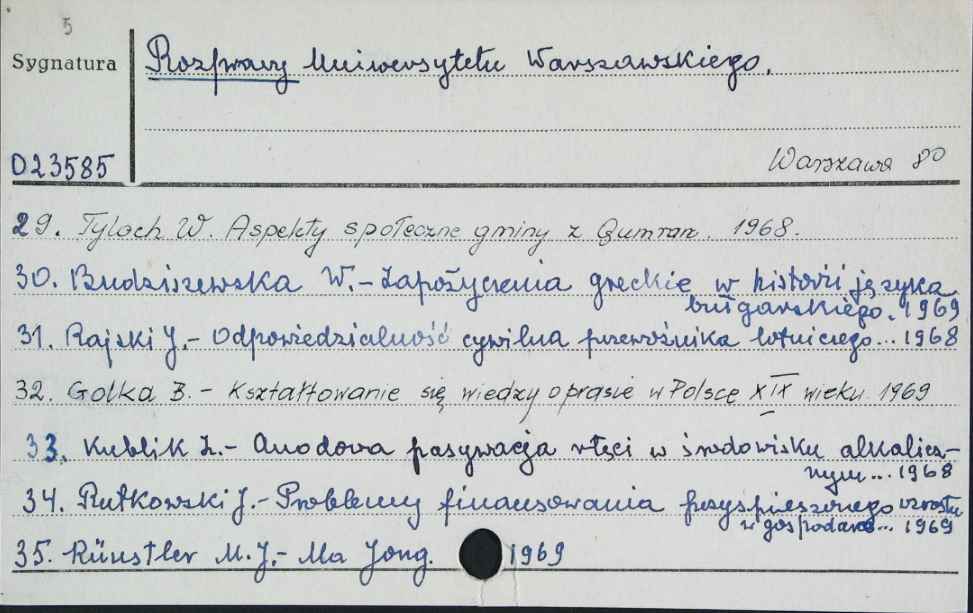 5
Sygnatura
Rozprawy Uniwersytetu Warszawskiego.
D23585
Warszawa 8⁰
29. Tyloch W. Aspekty społeczne gminy z Qumran. 1968.
30. Budziszewska W. - Zapożyczenia greckie w historii języka
bułgarskiego. 1969
31. Rajski J. - Odpowiedzialność cywilna przewoźnika lotniczego... 1968
32. Golka B. - Kształtowanie się wiedzy o prasie w Polsce XIX wieku 1969
33. Kublik Z. - Anodowa pasywacja rtęci w środowisku alkalicz-
nym... 1968
34. Rutkowski J. - Problemy finansowania przyspieszonego wzrostu
w gospodarce... 1969
35. Künstler M. J. - Ma Jong. 1969